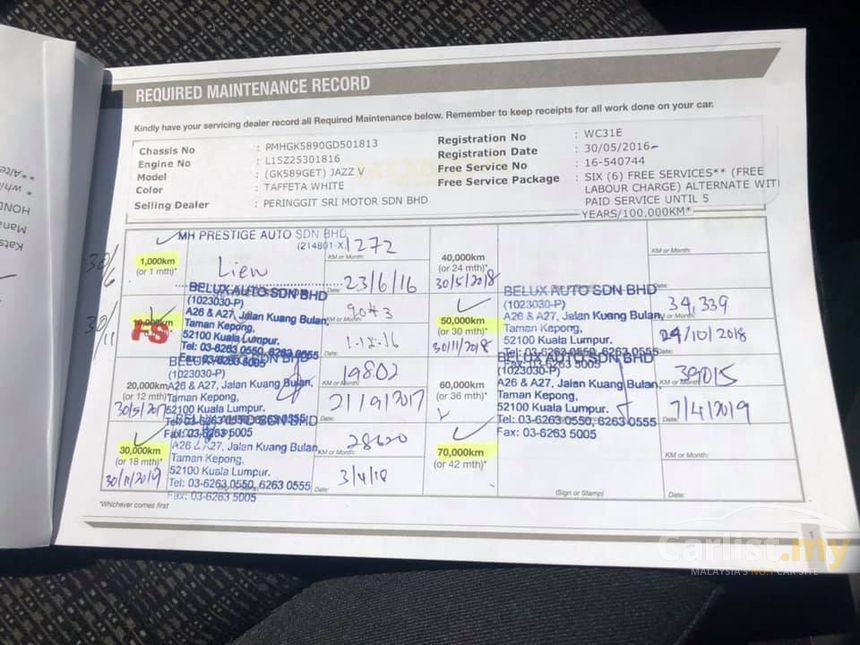 REQUIRED MAINTENANCE RECORD
Kindly have your servicing dealer record all Required Maintenance below. Remember to keep receipts for all work done on your car.
Chassis No : PMHGK5890GD501813
Engine No : L15Z25301816
Model : (GK589GET) JAZZ V
Color : TAFFETA WHITE
Selling Dealer : PERINGGIT SRI MOTOR SDN BHD
Registration No : WC31E
Registration Date : 30/05/2016
Free Service No : 16-540744
Free Service Package : SIX (6) FREE SERVICES** (FREE
LABOUR CHARGE) ALTERNATE WIT
PAID SERVICE UNTIL 5
YEARS/100,000KM*
30/6
1,000km
(or 1 mth)*
MH PRESTIGE AUTO SDN BHD
(214801-X)
Liew
1272
KM or Month:
23/6/16
Date:
30/11
10,000km
FS
BELUX AUTO SDN BHD
(1023030-P)
A26 & A27, Jalan Kuang Bulan,
Taman Kepong,
52100 Kuala Lumpur.
Tel: 03-6263 0550, 6263 0555
Fax: 03-6263 5005
9043
KM or Month:
1-12-16
Date:
20,000km
(or 12 mth)*
30/5/2017
BELUX AUTO SDN BHD
(1023030-P)
A26 & A27, Jalan Kuang Bulan,
Taman Kepong,
52100 Kuala Lumpur.
Tel: 03-6263 0550, 6263 0555
Fax: 03-6263 5005
19802
KM or Month:
21/9/2017
Date:
30,000km
(or 18 mth)*
SDN BHD
A26 & A27, Jalan Kuang Bulan,
Taman Kepong,
52100 Kuala Lumpur.
Tel: 03-6263 0550, 6263 0555
Fax: 03-6263 5005
28620
KM or Month:
3/4/18
Date:
*Whichever comes first
40,000km
(or 24 mth)*
30/5/2018
KM or Month:
50,000km
(or 30 mth)*
30/11/2018
BELUX AUTO SDN BHD
(1023030-P)
A26 & A27, Jalan Kuang Bulan,
Taman Kepong,
52100 Kuala Lumpur.
Tel: 03-6263 0550, 6263 0555
Fax: 03-6263 5005
34,339
24/10/2018
Date:
60,000km
(or 36 mth)*
BELUX AUTO SDN BHD
(1023030-P)
A26 & A27, Jalan Kuang Bulan,
Taman Kepong,
52100 Kuala Lumpur.
Tel: 03-6263 0550, 6263 0555
Fax: 03-6263 5005
39015
KM or Month:
7/4/2019
Date:
70,000km
(or 42 mth)*
(Sign or Stamp)
KM or Month:
Date:
1
Carlist.my
MALAYSIA'S NO.1 CAR SITE